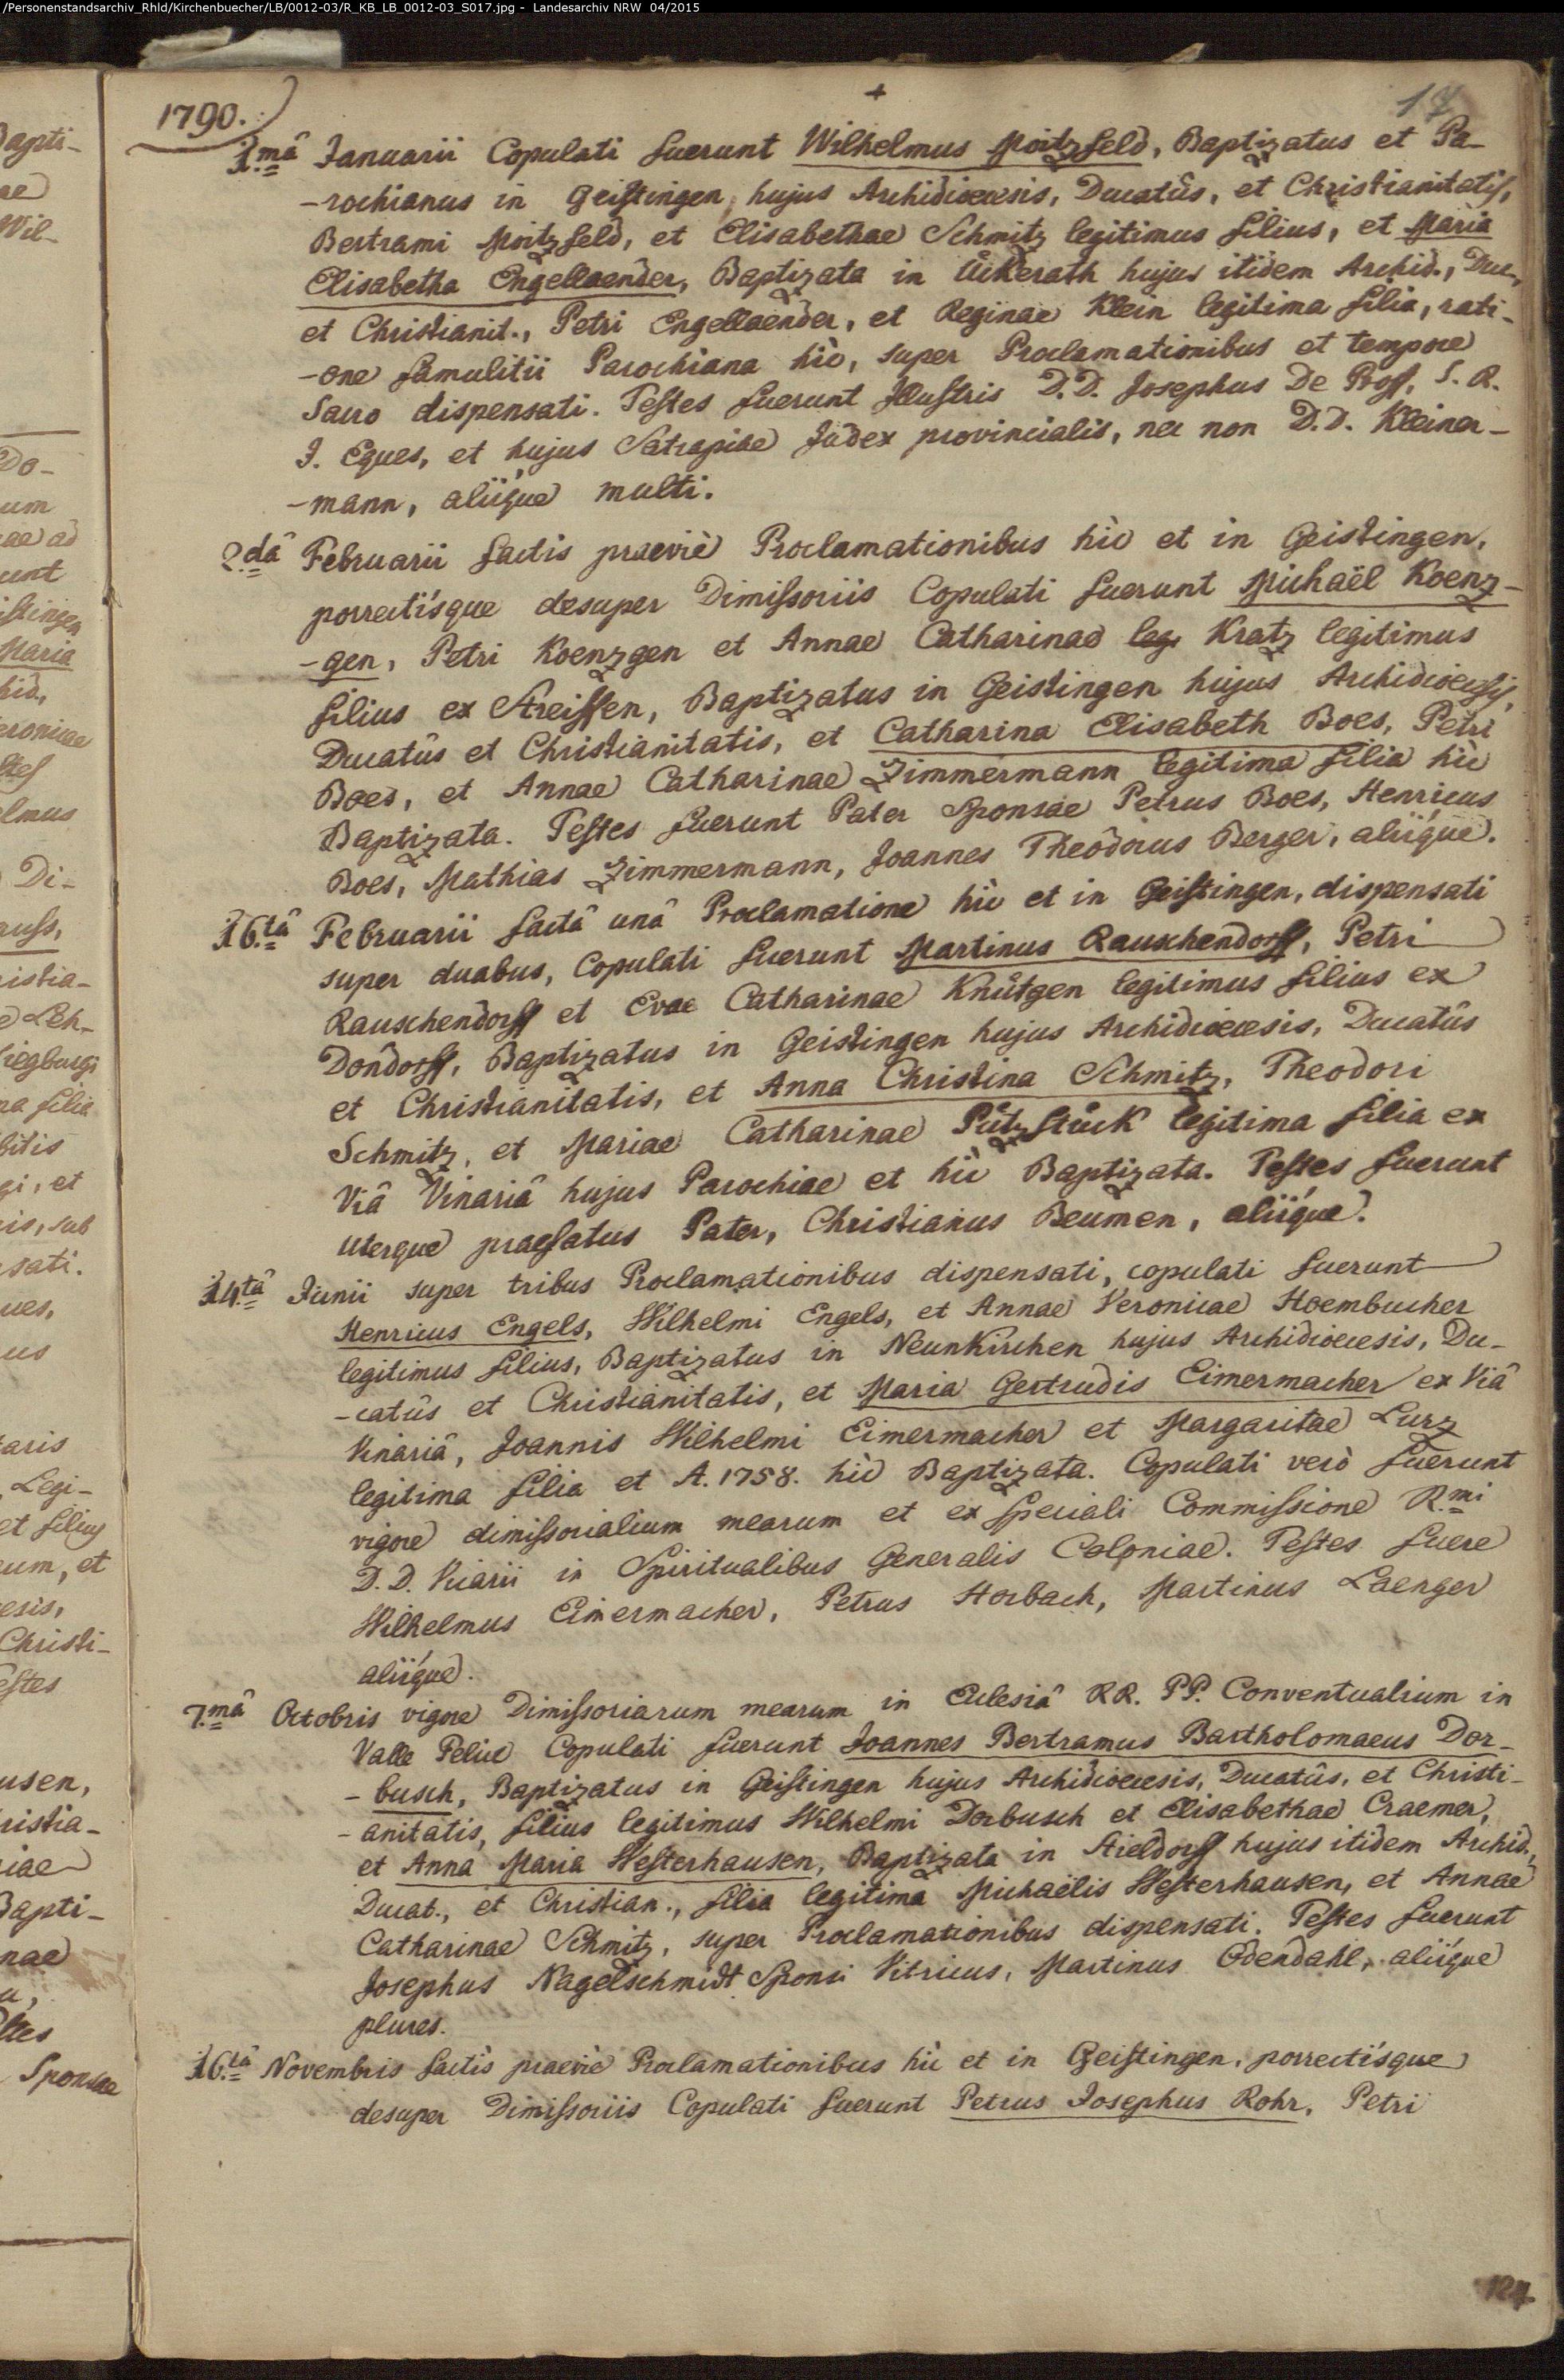 /Personenstandsarchiv_Rhld/Kirchenbuecher/LB/0012-03/R_KB_LB_0012-03_S017.jpg - Landesarchiv NRW 04/2015
1790.
17
1.mâ Januarii Copulati fuerunt Wilhelmus Moitzfeld, Baptizatus et Pa-
-rochianus in Geistingen, hujus Archidioecesis, Ducatûs, et Christianitatis,
Bertrami Moitzfeld, et Elisabethae Schmitz legitimus filius, et Maria
Elisabetha Engellaender, Baptizata in Uckerath hujus itidem Archid., Duc.,
et Christianit., Petri Engellaender, et Reginae Klein legitima filia, rati-
-one famulitii Parochiana hic, super Proclamationibus et tempore
Sacro dispensati. Testes fuerunt Illustris D.D. Josephus De Proff, S. R.
I. Eques, et hujus Satrapiae Judex provincialis, nec non D.D. Kleiner-
-mann, aliíque multi.
2.dâ Februarii factis praeviè Proclamationibus hìc et in Geistingen,
porrectísque desuper Dimissoriis Copulati fuerunt Michaël Koenz-
-gen, Petri Koenzgen et Annae Catharinae leg. Kratz legitimus
filius ex Strieffen, Baptizatus in Geistingen hujus Archidioecesis,
Ducatûs et Christianitatis, et Catharina Elisabeth Boes, Petri
Boes, et Annae Catharinae Zimmermann legitima filia hìc
Baptizata. Testes fuerunt Pater Sponsae Petrus Boes, Henricus
Boes, Mathias Zimmermann, Joannes Theodorus Berger, aliíque.
16.tâ Februarii factâ unâ Proclamatione hìc et in Geistingen, dispensati
super duabus, Copulati fuerunt Martinus Rauschendorff, Petri
Rauschendorff et Evae Catharinae Knütgen legitimus filius ex
Dondorff, Baptizatus in Geistingen hujus Archidioecesis, Ducatûs
et Christianitatis, et Anna Christina Schmitz, Theodori
Schmitz, et Mariae Catharinae Pützstück legitima filia ex
Viâ Vinariâ hujus Parochiae et hìc Baptizata. Testes fuerunt
uterque praefatus Pater, Christianus Beumen, aliíque.
14.tâ Junii super tribus Proclamationibus dispensati, copulati fuerunt
Henricus Engels, Wilhelmi Engels, et Annae Veronicae Hoembucher
legitimus filius, Baptizatus in Neunkirchen hujus Archidioecesis, Du-
-catûs et Christianitatis, et Maria Gertrudis Eimermacher ex Viâ
Vinariâ, Joannis Wilhelmi Eimermacher et Margaritae Lurz
legitima filia et A. 1758. hìc Baptizata. Copulati verò fuerunt
vigore dimissorialium mearum et ex speciali Commissione R.mi
D. D. Vicarii in Spiritualibus Generalis Coloniae. Testes fuere
Wilhelmus Eimermacher, Petrus Horbach, Martinus Laenger
aliíque.
7.mâ Octobris vigore Dimissoriarum mearum in Ecclesiâ RR. PP. Conventualium in
Valle Felice Copulati fuerunt Joannes Bertramus Bartholomaeus Dor-
-busch, Baptizatus in Geistingen hujus Archidioecesis, Ducatûs, et Christi-
-anitatis, filius legitimus Wilhelmi Dorbusch et Elisabethae Craemer,
et Anna Maria Westerhausen, Baptizata in Stieldorff hujus itidem Archid.,
Ducat., et Christian., filia legitima Michaëlis Westerhausen, et Annae
Catharinae Schmitz, super Proclamationibus dispensati. Testes fuerunt
Josephus Nagelschmidt Sponsi Vitricus, Martinus Odendahl, aliíque
plures.
16.tâ Novembris factis praeviè Proclamationibus hìc et in Geistingen, porrectísque
desuper Dimissoriis Copulati fuerunt Petrus Josephus Rohr, Petri